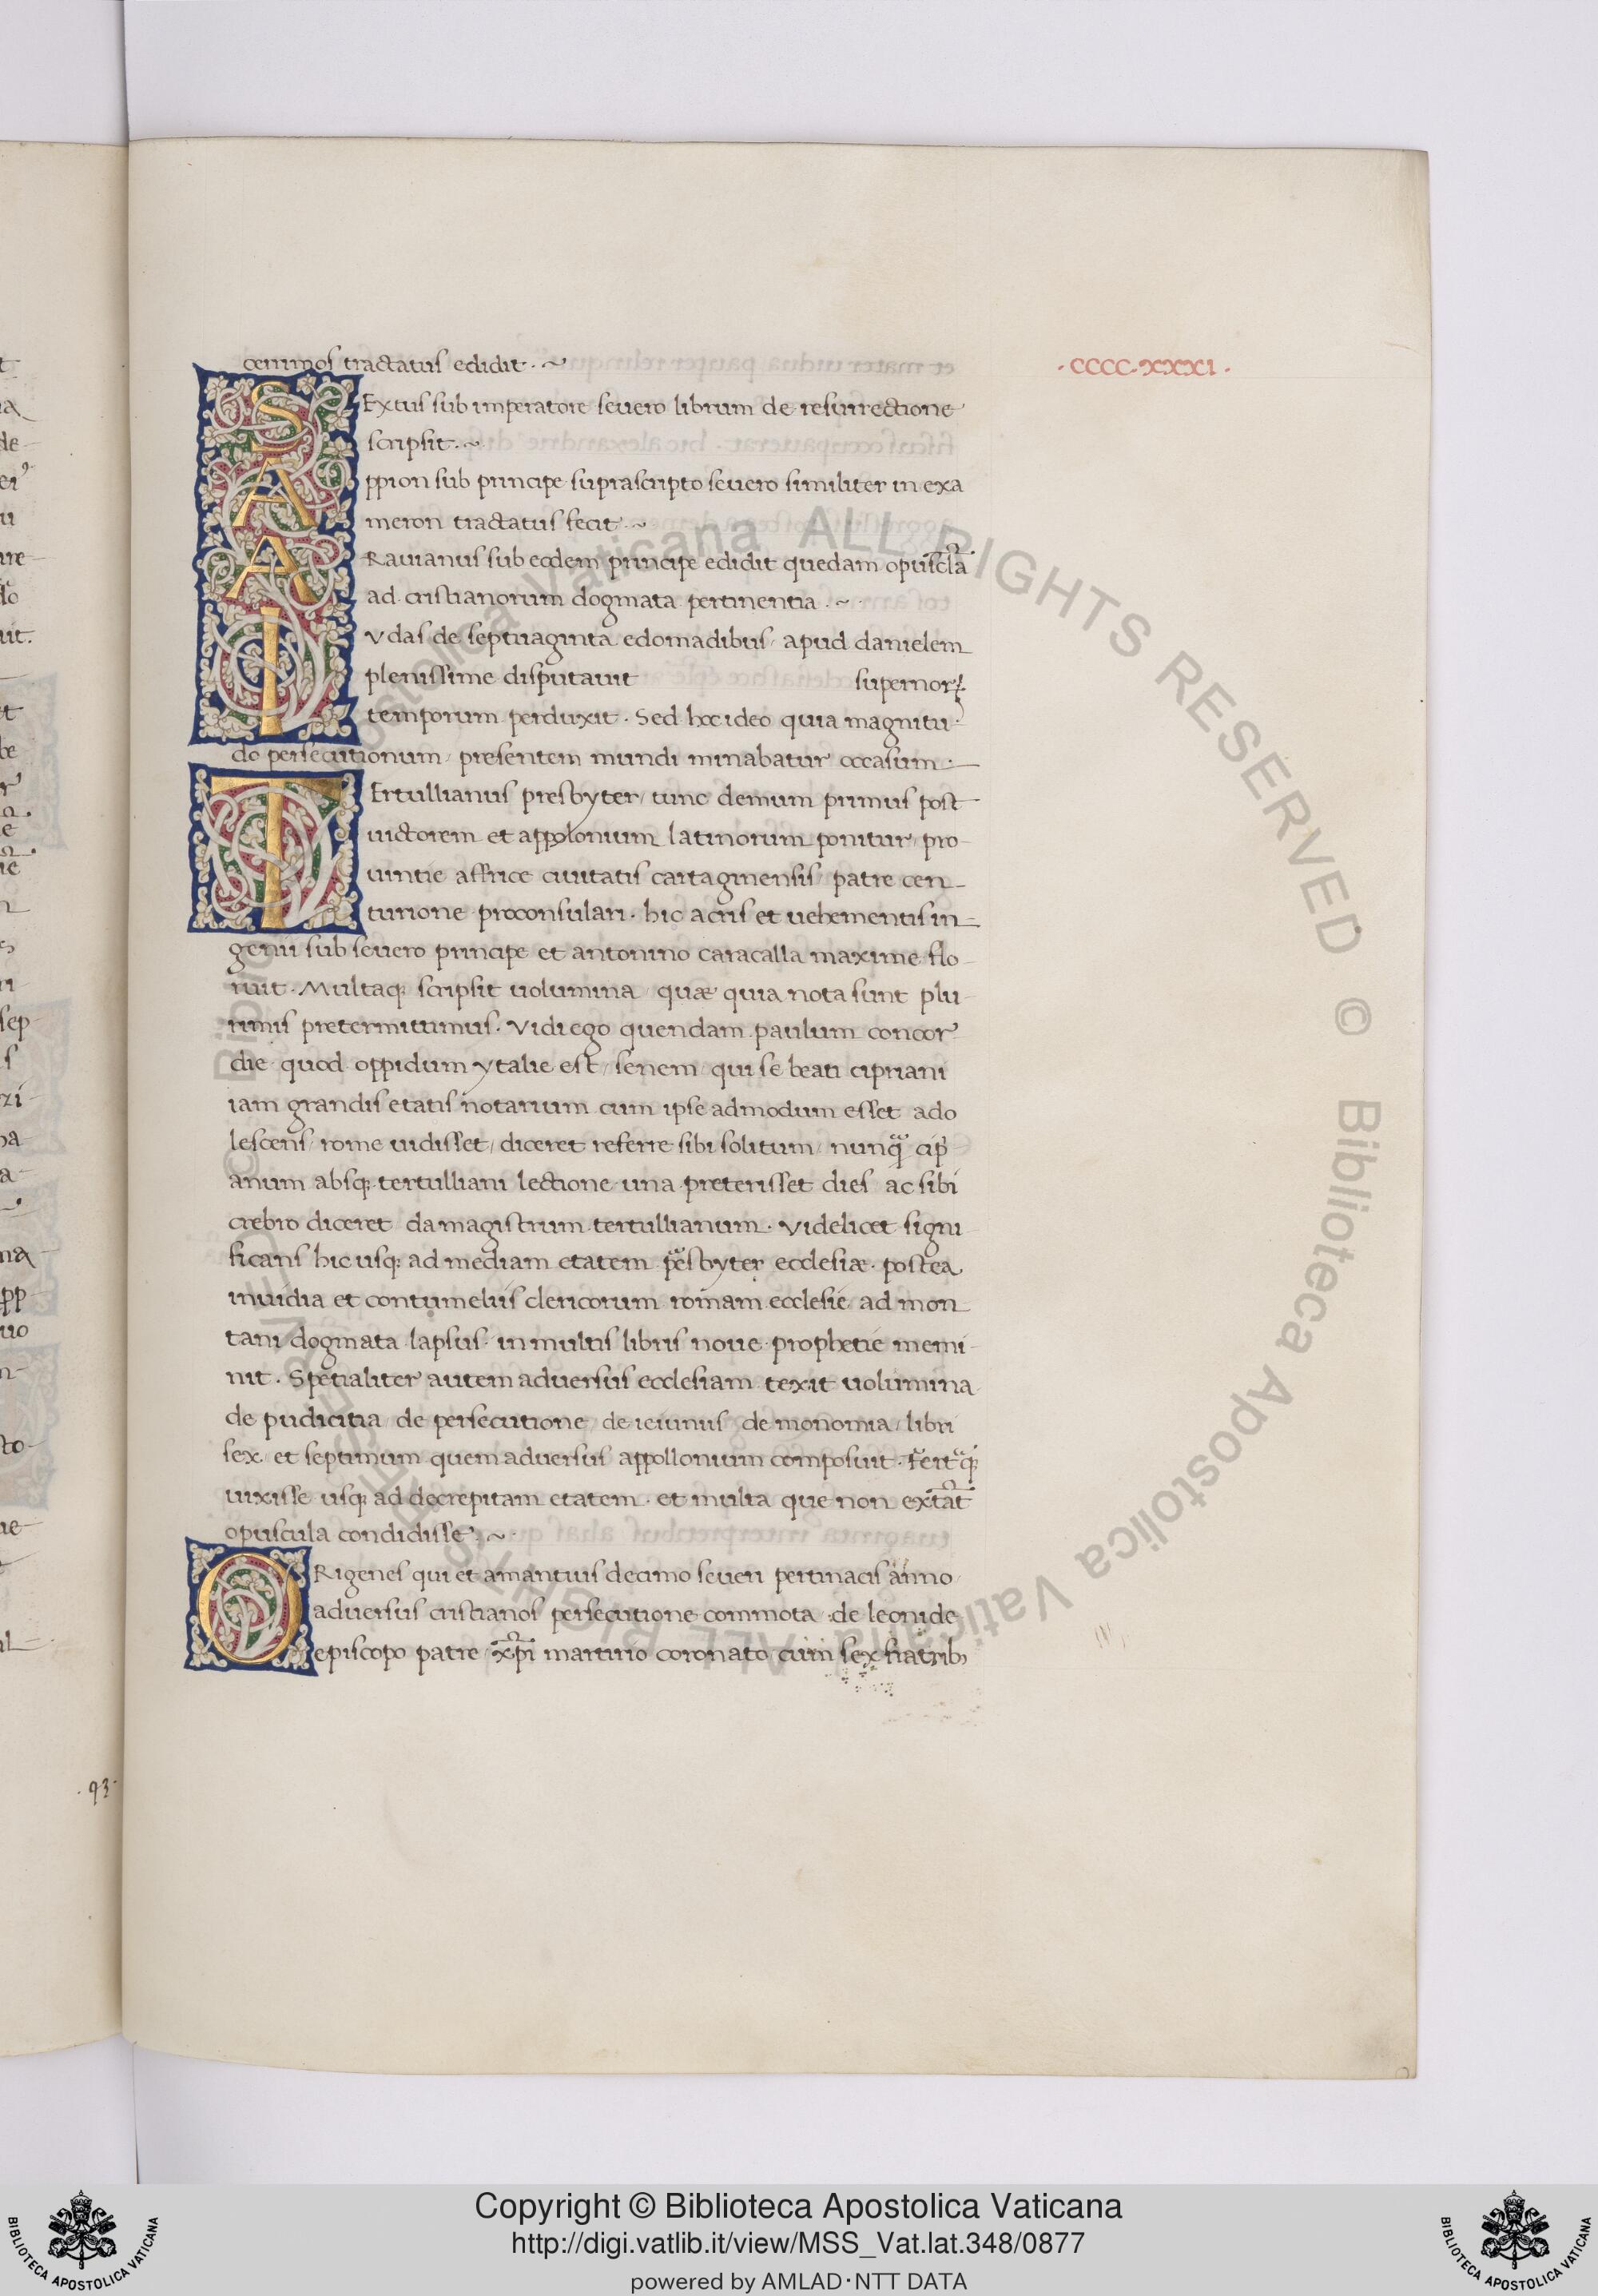 cemmos tractatus edidit . ~
· CCCC · XXXI ·
SExtus sub imperatore seuero librum de resurrectione
scripsit . ~
Appion sub principe suprascripto seuero similiter in exa
meron tractatus fecit . ~
ARauianus sub eodem principe edidit quedam opuscła
ad cristianorum dogmata pertinentia . ~
IVdas de septuaginta edomadibus / apud danielem
plenissime disputauit supernoꝝ
temporum perduxit . Sed hoc ideo quia magnitu-
do persecutionum / presentem mundi minabatur occasum . —
TErtullianus presbyter / tunc demum primus post
uictorem et appolonium latinorum ponitur / pro-
uintie affrice ciuitatis cartaginensis / patre cen-
turione proconsulari . hic acris et uehementis in-
genii sub seuero principe et antonino caracalla maxime flo-
ruit . Multaqꝫ scripsit uolumina / quæ quia nota sunt plu-
rimis pretermittimus . Vidi ego quendam paulum concor
die quod oppidum ytalie est / senem / qui se beati cipriani
iam grandis etatis notarium cum ipse admodum esset ado
lescens / rome uidisset / diceret referre sibi solitum / nunq̃ cipꝛ
anum absqꝫ tertulliani lectione una preterisset dies ac sibi
crebro diceret da magistrum tertullianum . Videlicet signi
ficans hic usqꝫ ad mediam etatem p̃esbyter ecclesiæ . postea
inuidia et contumeliis clericorum romam ecclesie / ad mon
tani dogmata lapsus . in multis libris noue prophetie memi-
nit . Spetialiter autem aduersus ecclesiam texit uolumina
de pudicitia / de persecutione / de ieiuniis / de monomia / libri
sex . et septimum quem aduersus appollonium composuit . Fert̃qꝫ
uixisse usqꝫ ad decrepitam etatem . et multa que non extãt
opuscula condidisse . ~
ORigenes qui et amantuis decimo seueri pertinacis anno
aduersus cristianos persecutione commota : de leonide
episcopo patre xp̃i martirio coronato / cum sex fratribꝫ
. 93 .
© Biblioteca Apostolica Vaticana ALL RIGHTS RESERVED © Biblioteca Apostolica Vaticana ALL RIGHTS RESERVED
Copyright © Biblioteca Apostolica Vaticana
http://digi.vatlib.it/view/MSS_Vat.lat.348/0877
powered by AMLAD · NTT DATA
BIBLIOTECA APOSTOLICA VATICANA
BIBLIOTECA APOSTOLICA VATICANA